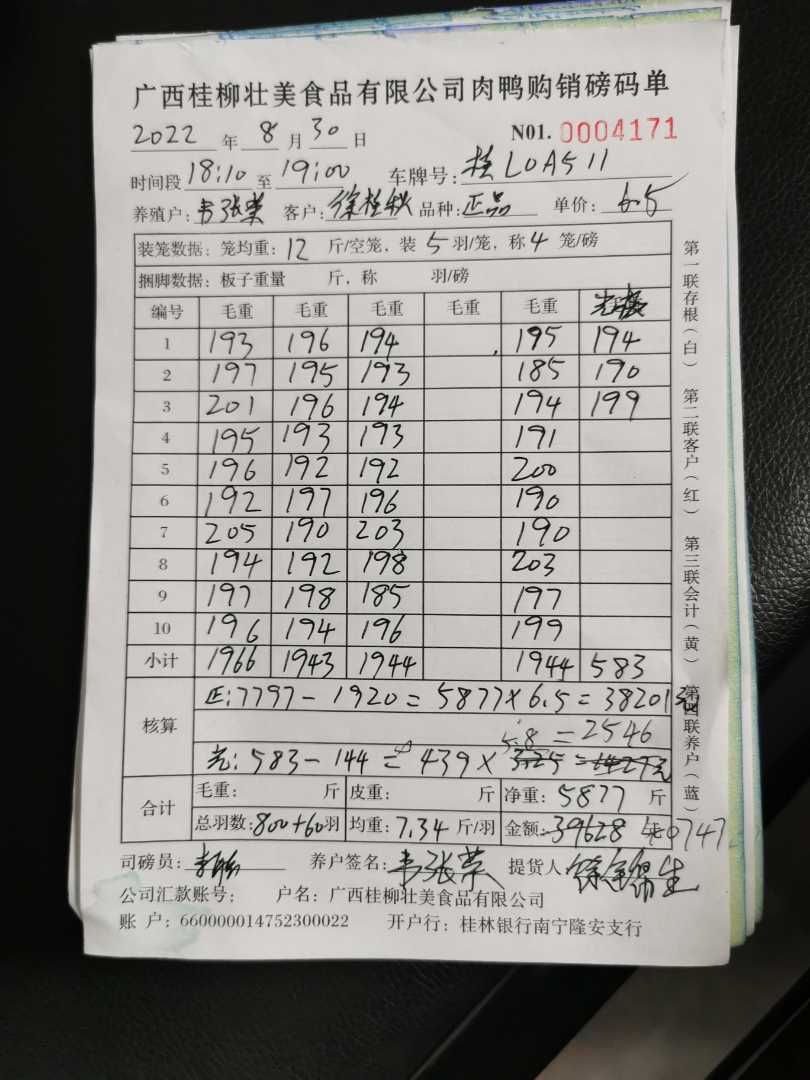 广西桂柳壮美食品有限公司肉鸭购销磅码单
2022 年 8 月 30 日 N01. 0004171
时间段 18:10 至 19:00 车牌号: 桂L0A511
养殖户: 韦张荣 客户: 徐桂秋 品种: 正品 单价: 6.5
装笼数据: 笼均重: 12 斤/空笼, 装 5 羽/笼, 称 4 笼/磅
捆脚数据: 板子重量 斤, 称 羽/磅
编号 毛重 毛重 毛重 毛重 毛重
1 193 196 194 195 194
2 197 195 193 185 190
3 201 196 194 194 199
4 195 193 193 191
5 196 192 192 200
6 192 197 196 190
7 205 190 203 190
8 194 192 198 203
9 197 198 185 197
10 196 194 196 199
小计 1966 1943 1944 1944 583
核算 正: 7797 - 1920 = 5877 × 6.5 = 38201元
5.8 = 2546
光: 583 - 144 = 439 × 3.25 = 1427元
合计 毛重: 斤 皮重: 斤 净重: 5877 斤
总羽数: 800+60 羽 均重: 7.34 斤/羽 金额: 39628 40747
司磅员: 养户签名: 韦张荣 提货人
公司汇款账号: 户名: 广西桂柳壮美食品有限公司
账 户: 660000014752300022 开户行: 桂林银行南宁隆安支行
第一联存根(白) 第二联客户(红) 第三联会计(黄) 第四联养户(蓝)